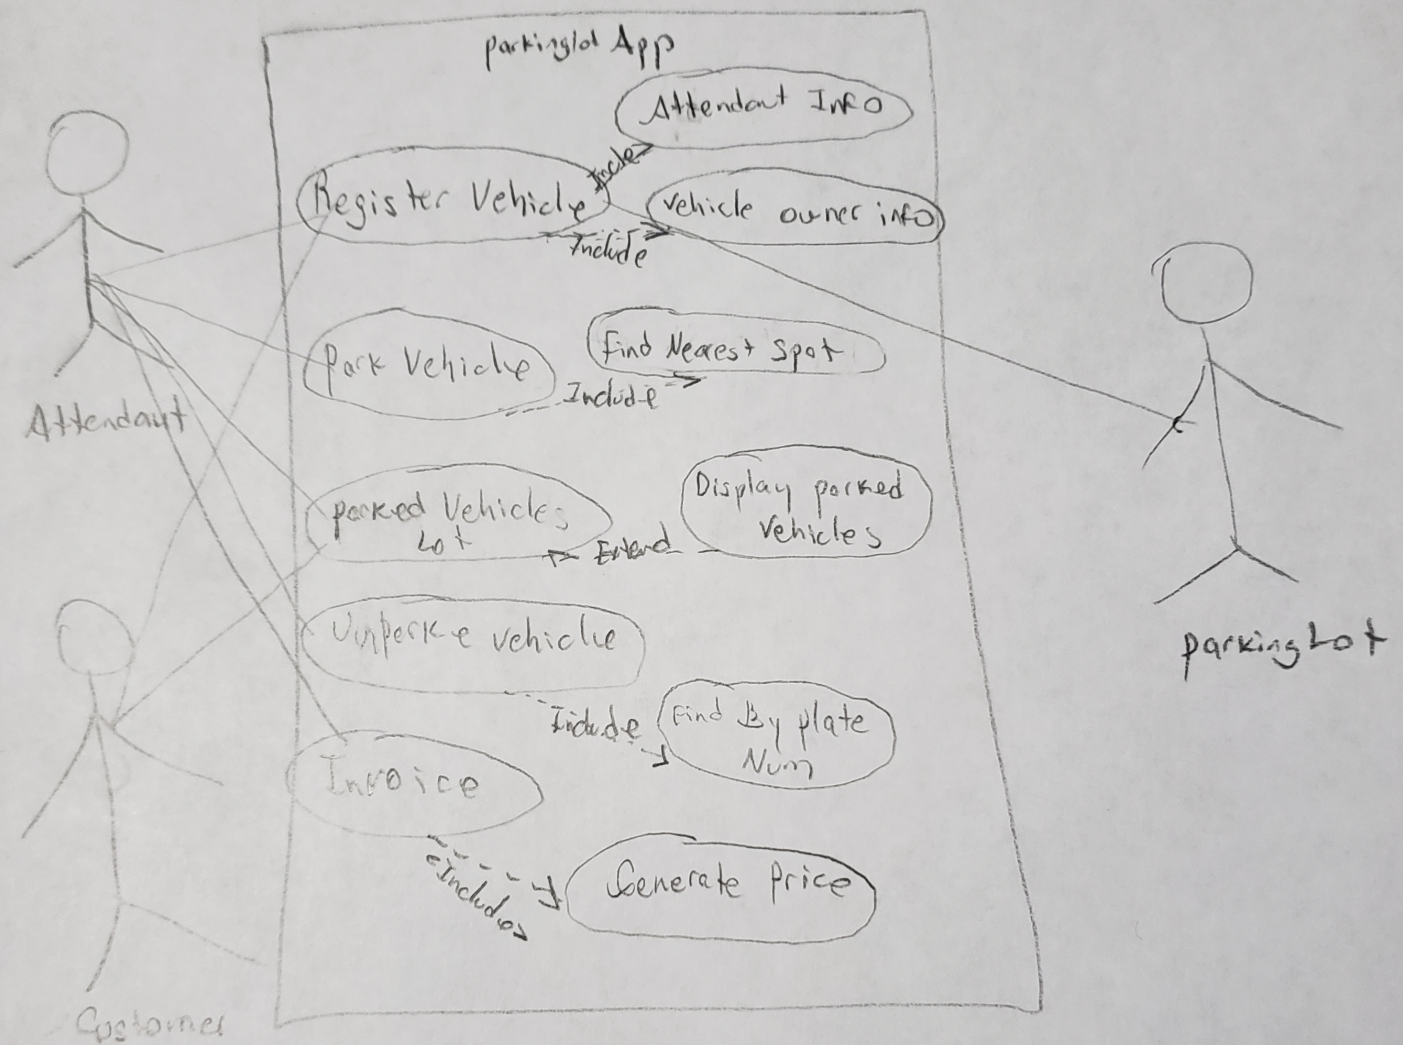 parkinglot App
Attendant Info
Register Vehicle
Include
vehicle owner info
Include
Park Vehicle
Find Nearest Spot
Include
Attendant
parked Vehicles
Lot
Extend
Display parked
vehicles
Unparke vehicle
Include
Find By plate
Num
parkingLot
Invoice
<Include>
Generate Price
Customer